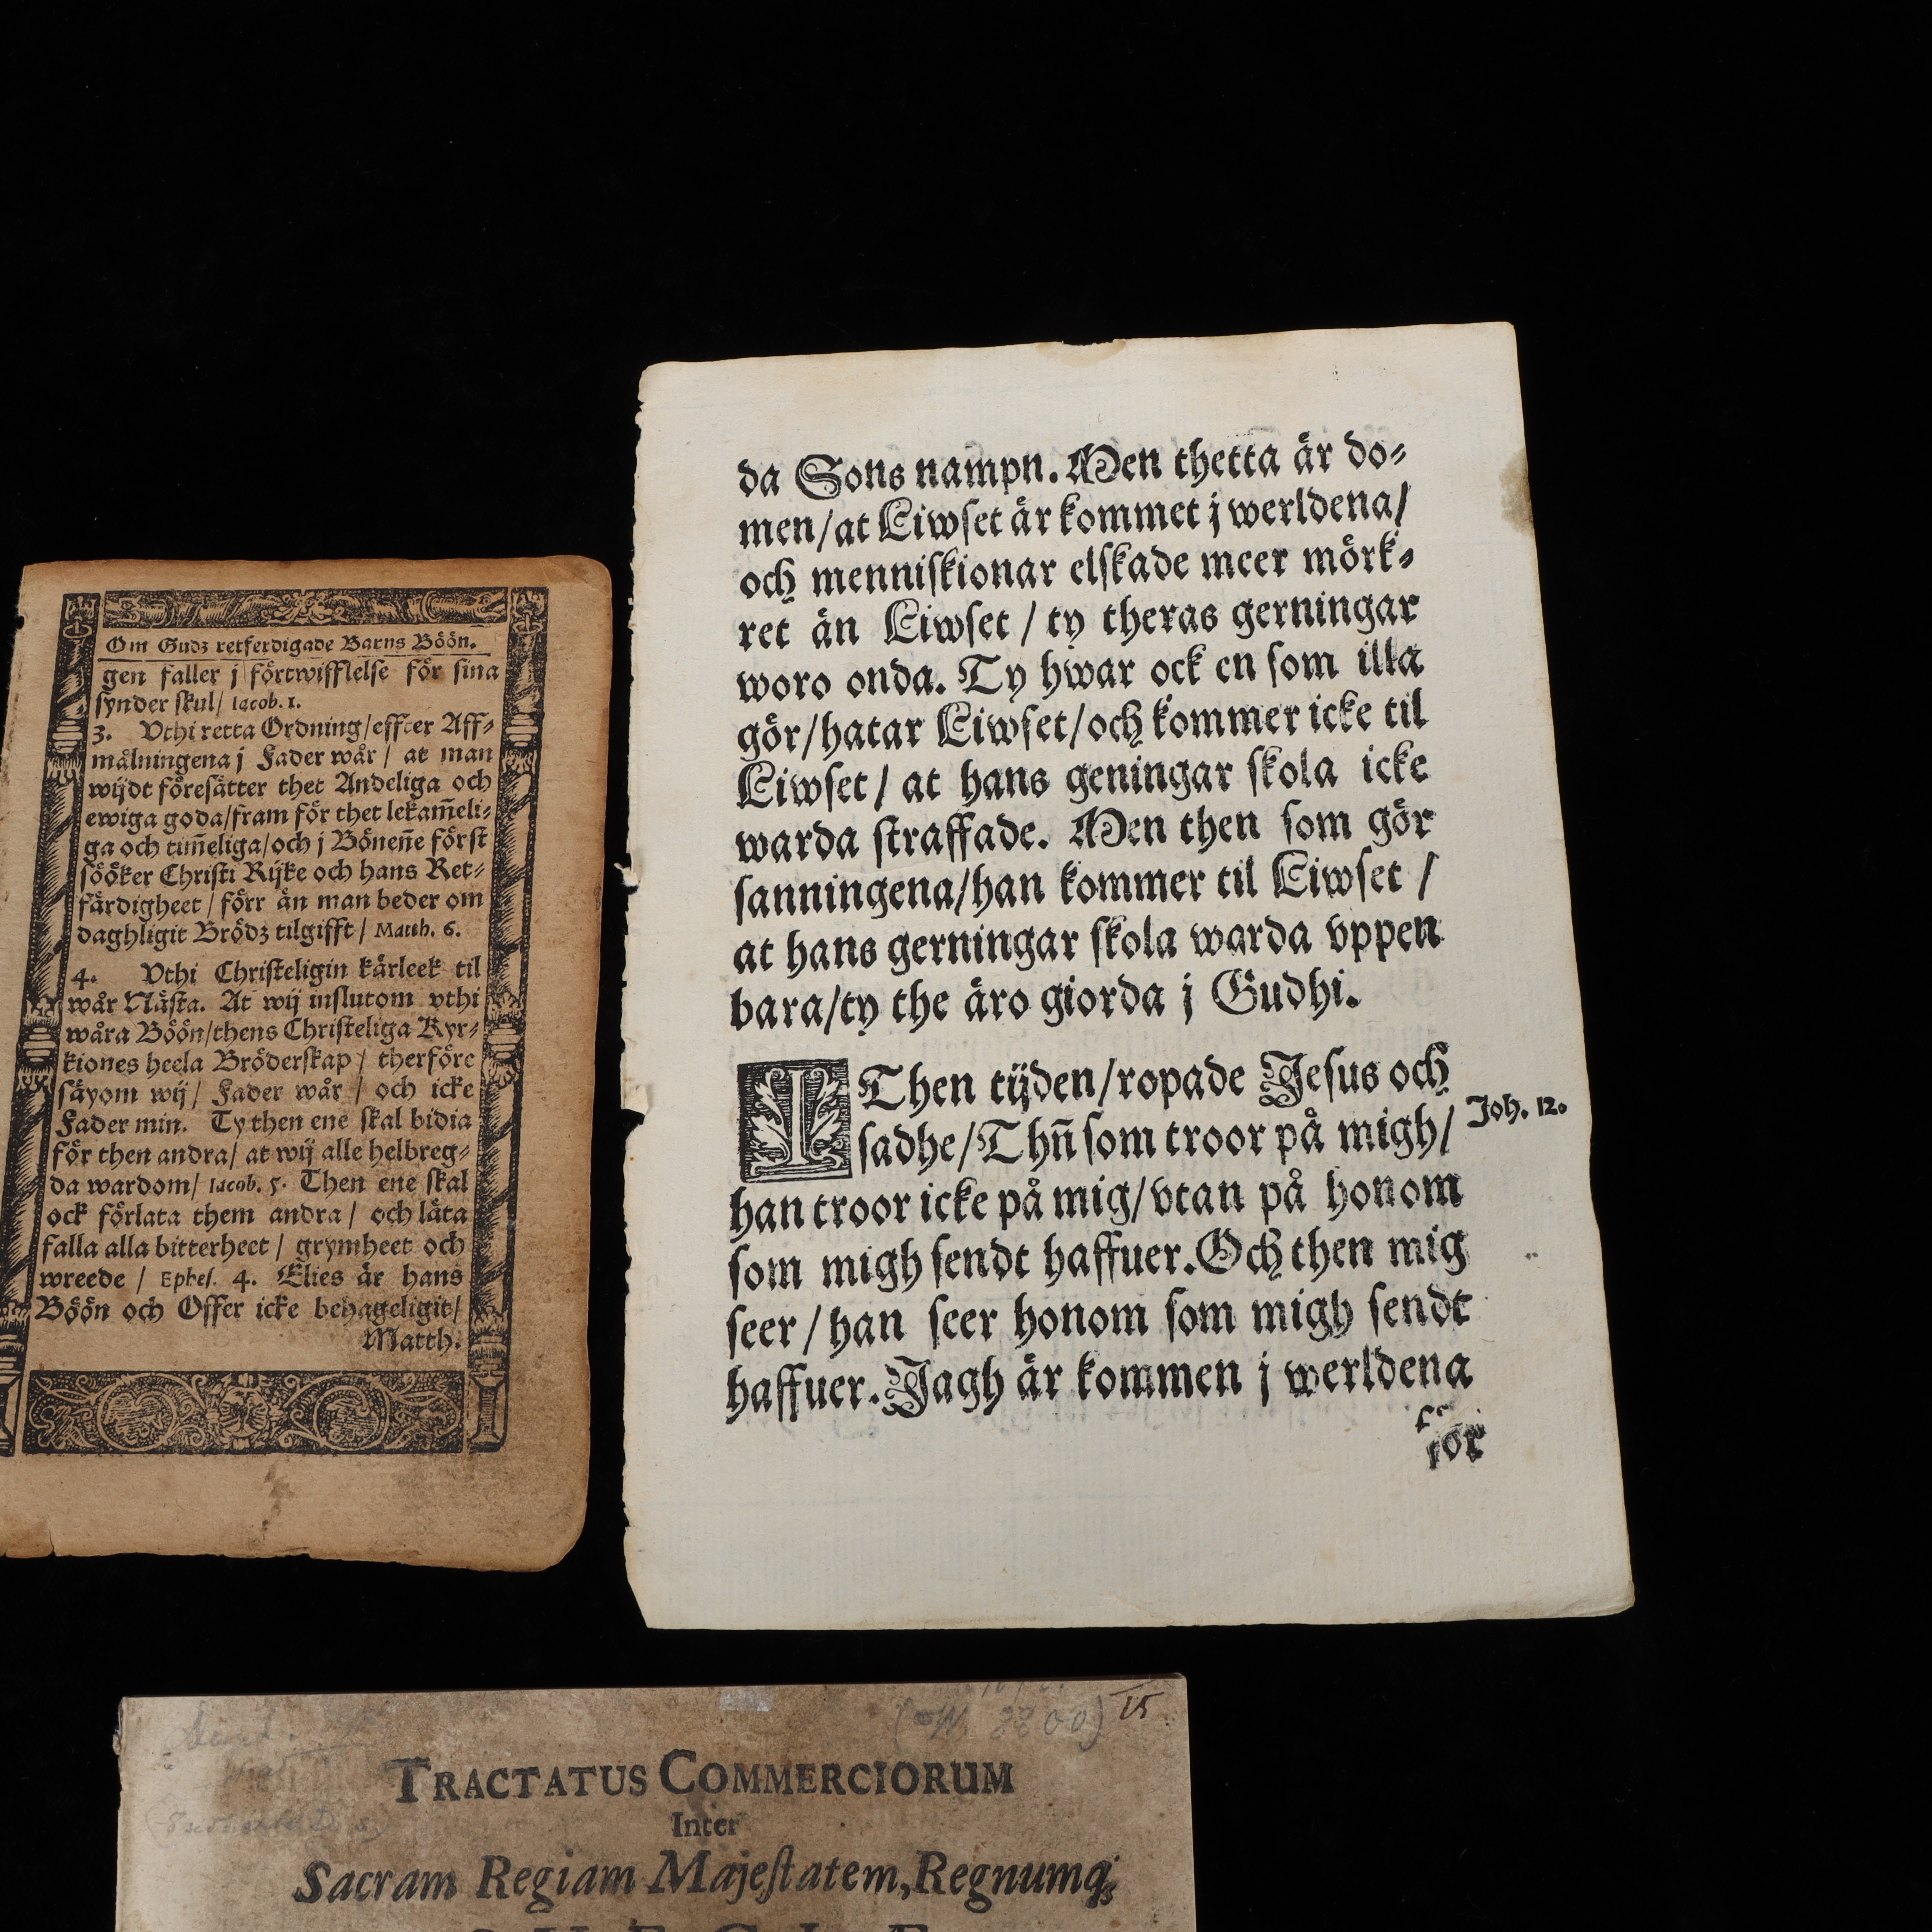 Om Gudz retferdigade Barns Böön.
gen faller j förtwifflelse för sina
synder skul/ Iacob. 1.
3. Vthi retta Ordning/effter Aff⸗
målningena j Fader wår/ at man
wijdt föresätter thet Andeliga och
ewiga goda/fram för thet lekam̃eli⸗
ga och tim̃eliga/och j Bönen̄e först
sööker Christi Rijke och hans Ret⸗
färdigheet/ förr än man beder om
daghligit Brödz tilgifft/ Matth. 6.
4. Vthi Christeligin kärleek til
wår Nästa. At wij inslutom vthi
wåra Böön/thens Christeliga Kyr⸗
kiones heela Bröderskap/ therföre
säyom wij/ Fader wår/ och icke
Fader min. Ty then ene skal bidia
för then andra/ at wij alle helbreg⸗
da wardom/ Iacob. 5. Then ene skal
ock förlata them andra/ och låta
falla alla bitterheet/ grymheet och
wreede/ Ephes. 4. Elies är hans
Böön och Offer icke behageligit/
Matth.
da Sons nampn. Men thetta är do⸗
men/at Liwset är kommet j werldena/
och menniskionar elskade meer mörk⸗
ret än Liwset/ ty theras gerningar
woro onda. Ty hwar ock en som illa
gör/hatar Liwset/och kommer icke til
Liwset/ at hans geningar skola icke
warda straffade. Men then som gör
sanningena/han kommer til Liwset/
at hans gerningar skola warda vppen
bara/ty the äro giorda j Gudhi.
I Then tijden/ropade Jesus och
sadhe/Thn̄ som troor på migh/ Joh. 12.
han troor icke på mig/vtan på honom
som migh sendt haffuer. Och then mig
seer/han seer honom som migh sendt
haffuer. Jagh är kommen j werldena
för
15
TRACTATUS COMMERCIORUM
Inter
Sacram Regiam Majestatem, Regnumq;